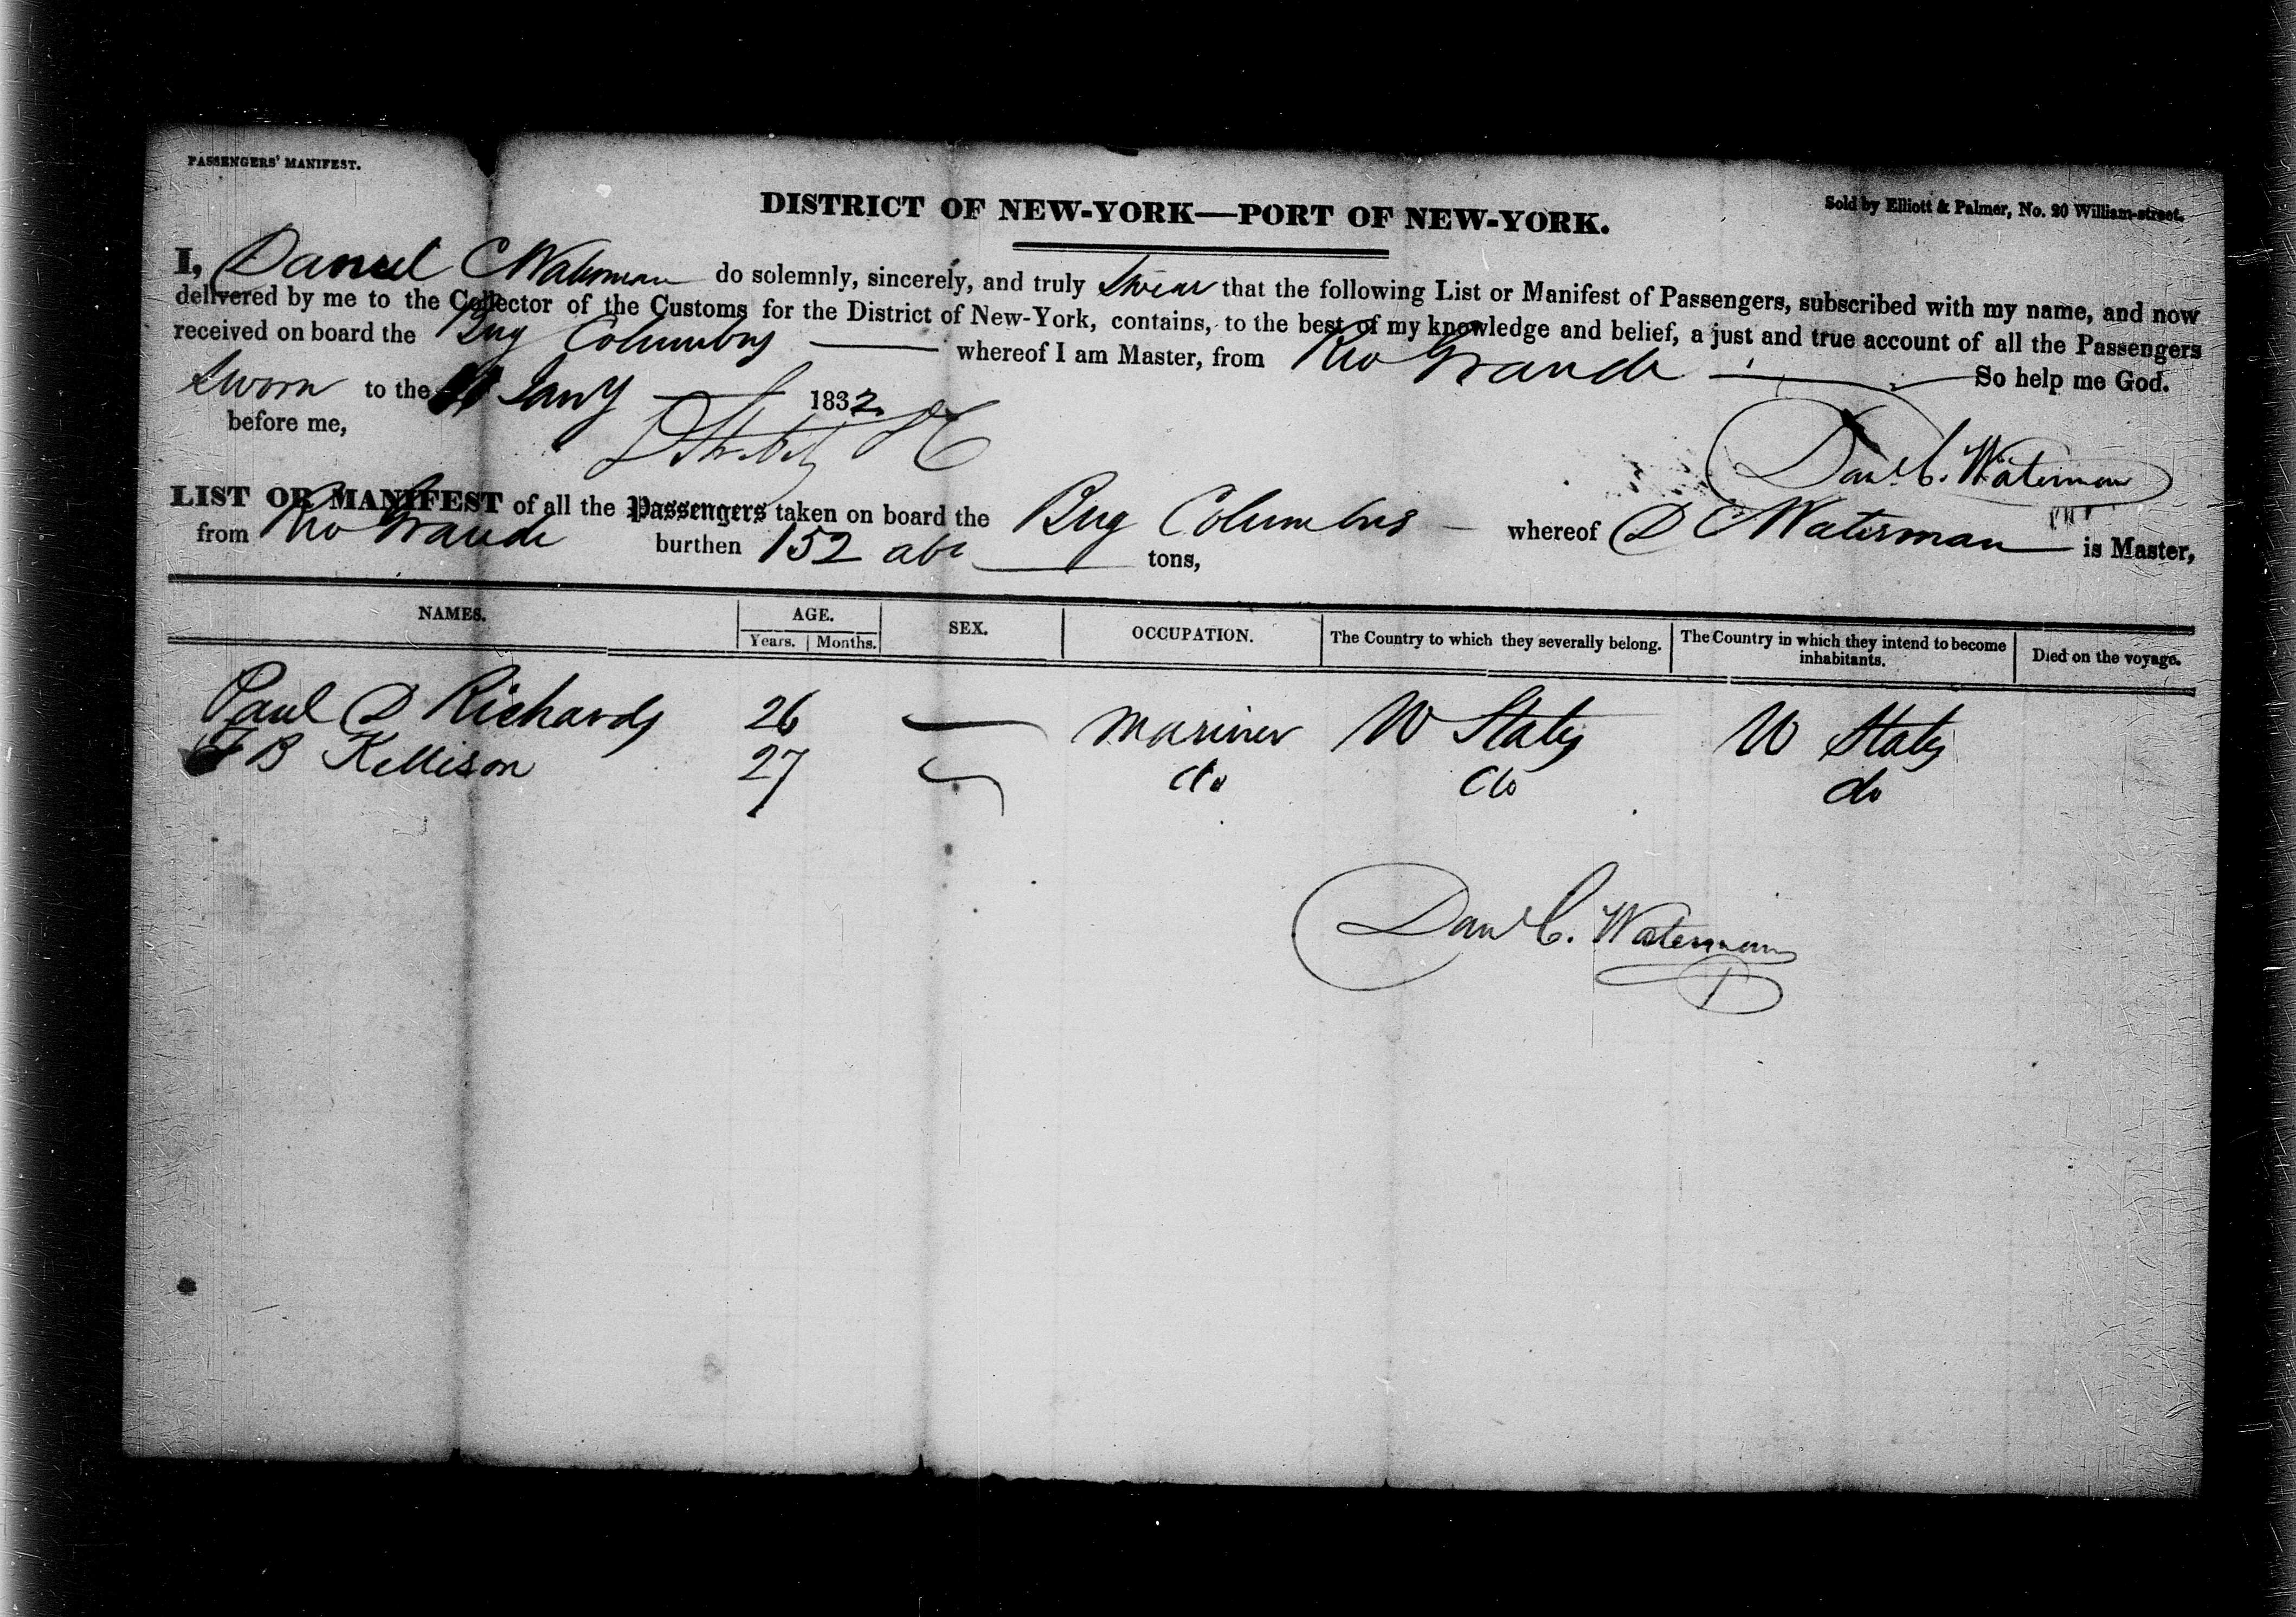 PASSENGERS' MANIFEST.
DISTRICT OF NEW-YORK—PORT OF NEW-YORK.
Sold by Elliott & Palmer, No. 20 William-street.
I, Daniel C Waterman do solemnly, sincerely, and truly swear that the following List or Manifest of Passengers, subscribed with my name, and now
delivered by me to the Collector of the Customs for the District of New-York, contains, to the best of my knowledge and belief, a just and true account of all the Passengers
received on board the Brig Columbus — whereof I am Master, from Rio Grande — So help me God.
Sworn to the Jany 1832
before me,
Danl C. Waterman
LIST OR MANIFEST of all the Passengers taken on board the Brig Columbus — whereof D C Waterman is Master,
from Rio Grande burthen 152 abt tons,
NAMES. AGE. SEX. OCCUPATION. The Country to which they severally belong. The Country in which they intend to become inhabitants. Died on the voyage.
Years. Months.
Paul D Richards 26 — Mariner U States U States
F B Kellison 27 do do do
Danl C. Waterman